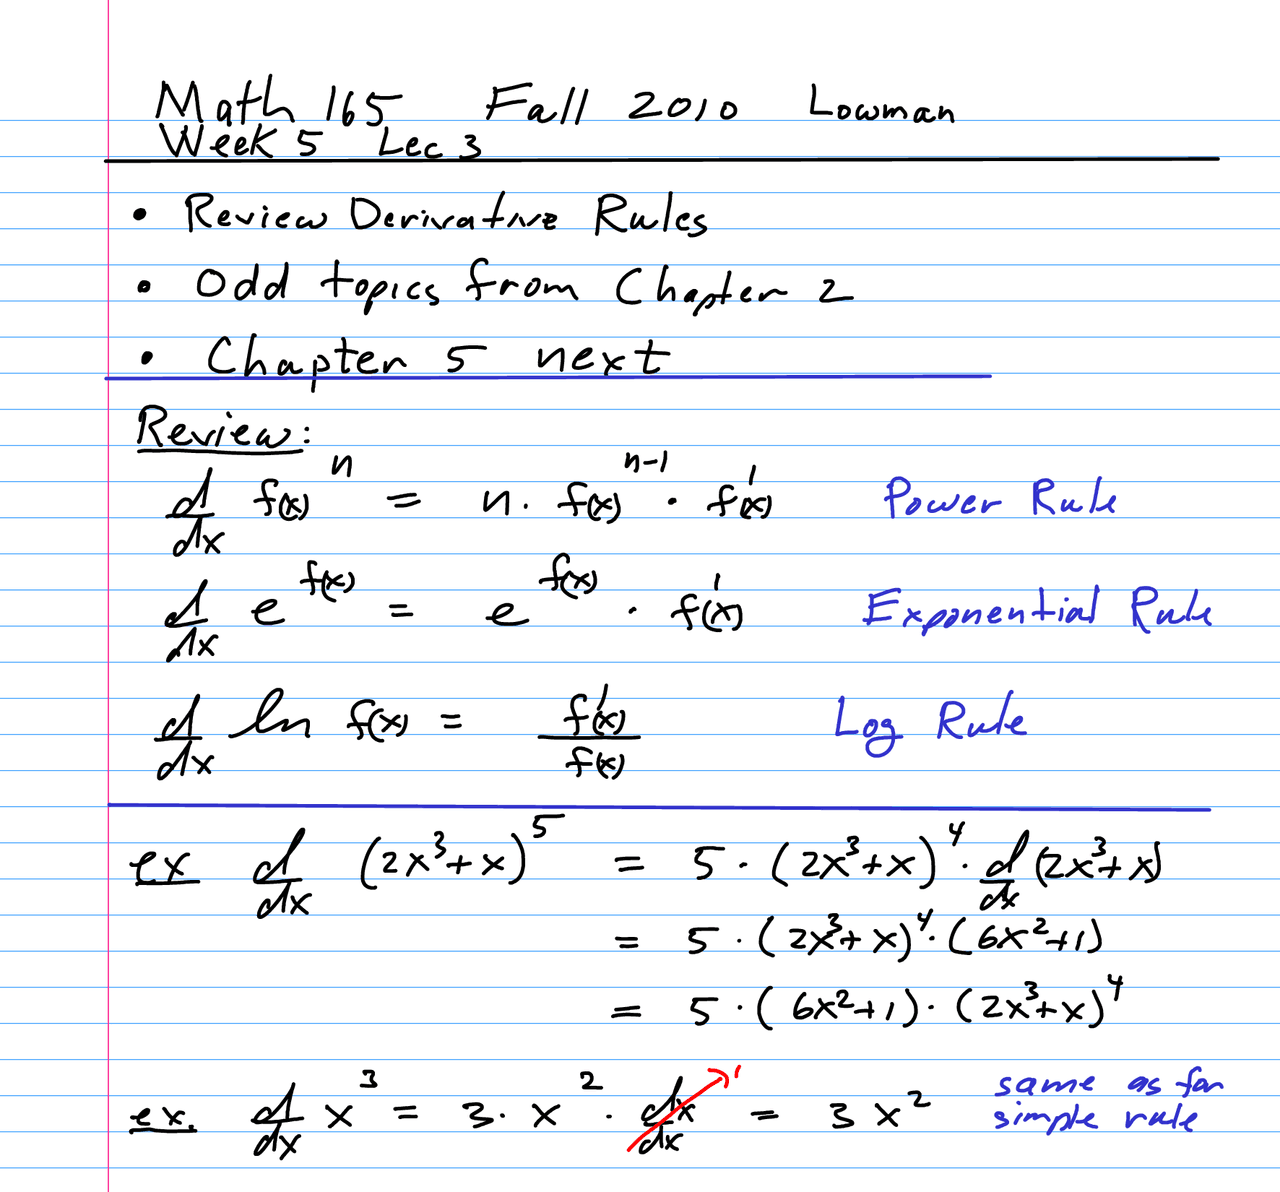 Math 165 Fall 2010 Lowman
Week 5 Lec 3
• Review Derivative Rules
• Odd topics from Chapter 2
• Chapter 5 next
Review:
d/dx f(x)^n = n · f(x)^(n-1) · f'(x) Power Rule
d/dx e^f(x) = e^f(x) · f'(x) Exponential Rule
d/dx ln f(x) = f'(x)/f(x) Log Rule
ex d/dx (2x³+x)⁵ = 5 · (2x³+x)⁴ · d/dx (2x³+x)
= 5 · (2x³+x)⁴ · (6x²+1)
= 5 · (6x²+1) · (2x³+x)⁴
ex. d/dx x³ = 3 · x² · dx/dx 1 = 3x² same as for
simple rule